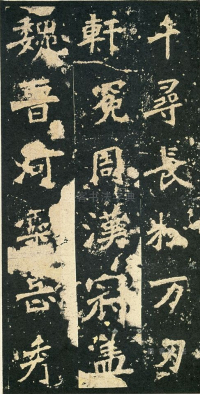 千尋長松万刃
軒冕周漢冠盖
魏晋河靈岳秀